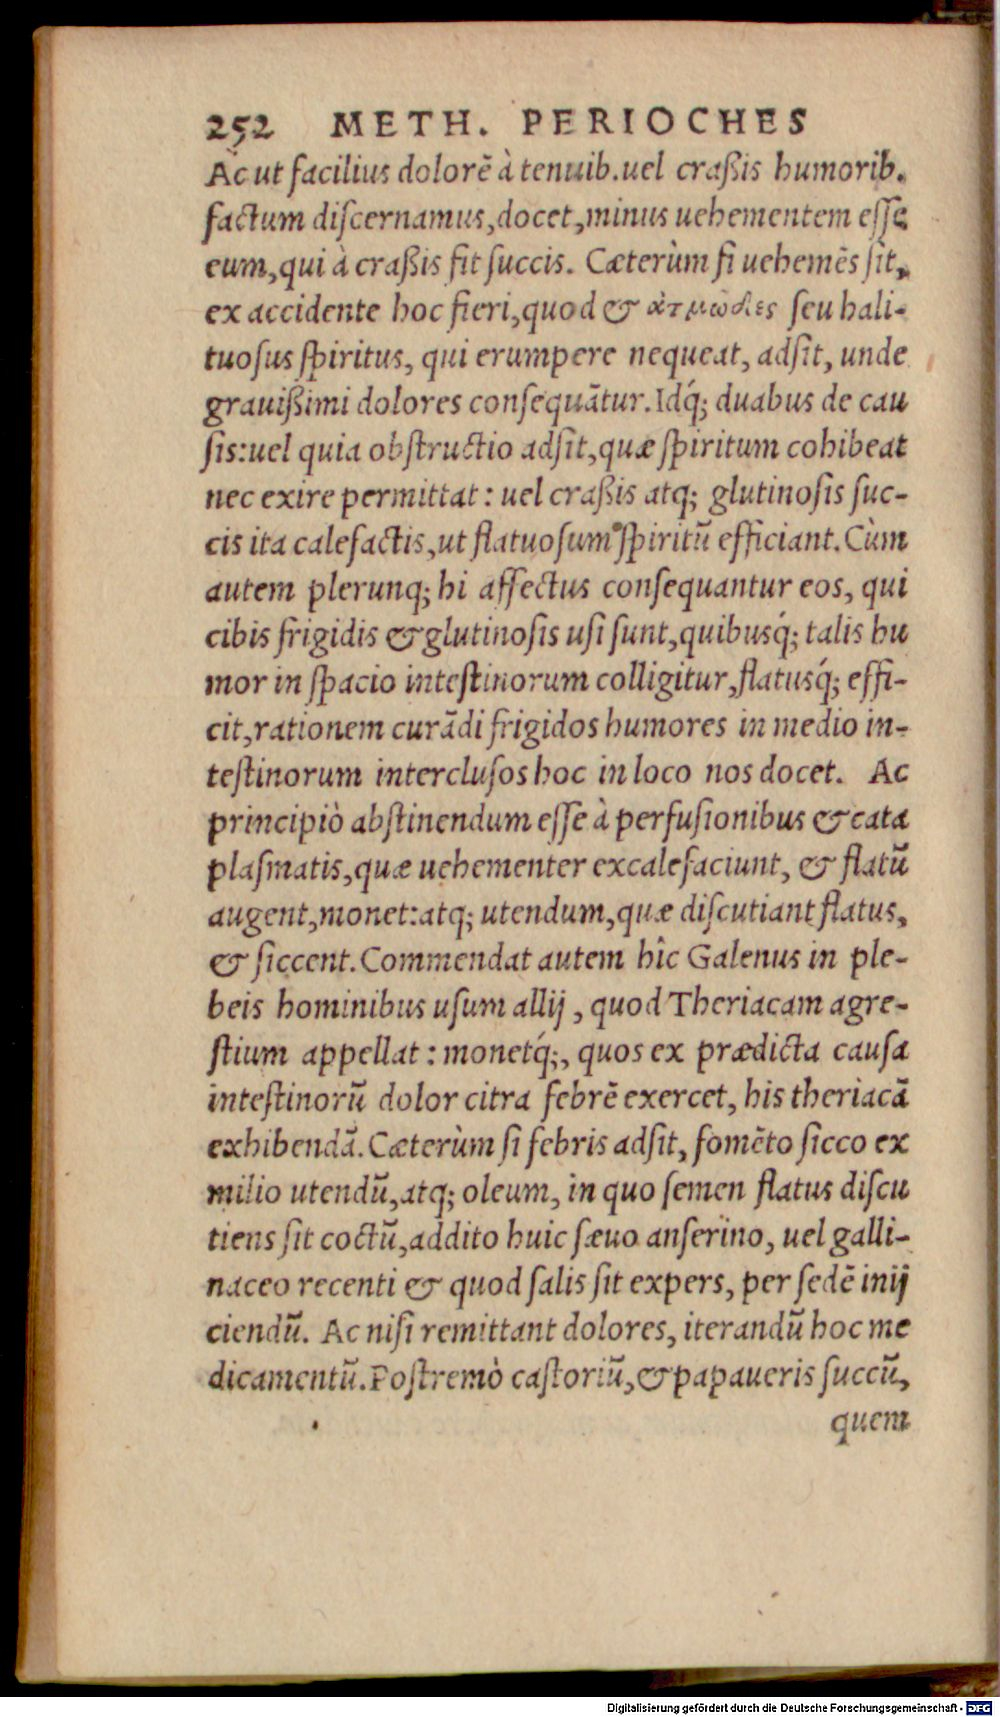 252 METH. PERIOCHES
Ac ut facilius dolorē à tenuib.uel craßis humorib.
factum discernamus,docet,minus uehementem esse
eum,qui à craßis fit succis. Cæterùm si uehemēs sit,
ex accidente hoc fieri,quod & ἀτμῶδες seu hali-
tuosus spiritus, qui erumpere nequeat, adsit, unde
grauißimi dolores consequātur.Idq́; duabus de cau
sis:uel quia obstructio adsit,quæ spiritum cohibeat
nec exire permittat: uel craßis atq; glutinosis suc-
cis ita calefactis,ut flatuosum spiritū efficiant.Cùm
autem plerunq; hi affectus consequantur eos, qui
cibis frigidis & glutinosis usi sunt,quibusq́; talis hu
mor in spacio intestinorum colligitur,flatusq́; effi-
cit,rationem curādi frigidos humores in medio in-
testinorum interclusos hoc in loco nos docet. Ac
principiò abstinendum esse à perfusionibus & cata
plasmatis,quæ uehementer excalefaciunt, & flatū
augent,monet:atq; utendum,quæ discutiant flatus,
& siccent.Commendat autem hîc Galenus in ple-
beis hominibus usum allij, quod Theriacam agre-
stium appellat: monetq́;, quos ex prædicta causa
intestinorū dolor citra febrē exercet, his theriacā
exhibendā. Cæterùm si febris adsit, fomēto sicco ex
milio utendū,atq; oleum, in quo semen flatus discu
tiens sit coctū,addito huic sæuo anserino, uel galli-
naceo recenti & quod salis sit expers, per sedē inij
ciendū. Ac nisi remittant dolores, iterandū hoc me
dicamentū.Postremò castoriū,& papaueris succū,
quem
Digitalisierung gefördert durch die Deutsche Forschungsgemeinschaft - DFG